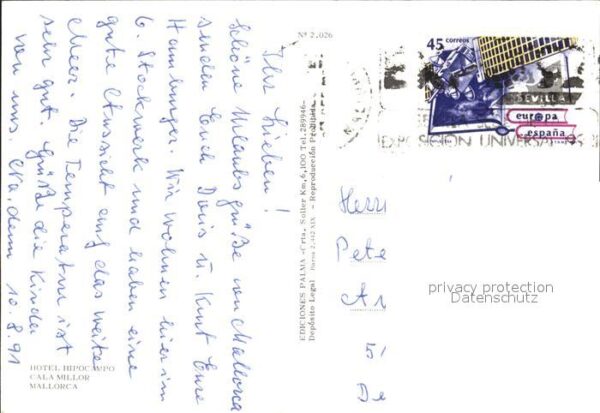 Ihr Lieben!
Schöne Urlaubsgrüße von Mallorca
senden Euch Doris u. Kurt Eure
Hamburger. Wir wohnen hier im
6. Stockwerk und haben eine
gute Aussicht auf das weite
Meer. Die Temperatur ist
sehr gut Grüße die Kinder
von uns. dem 10.8.91
HOTEL HIPOCAMPO
CALA MILLOR
MALLORCA
Nº 2.026
EDICIONES PALMA -Crta. Soller Km,6,100 Tel.289946-
Depósito Legal - Reproducción
45 correos
europa
españa
SEVILLA
EXPOSICION UNIVERSAL
Herrn
Pete
privacy protection
Datenschutz